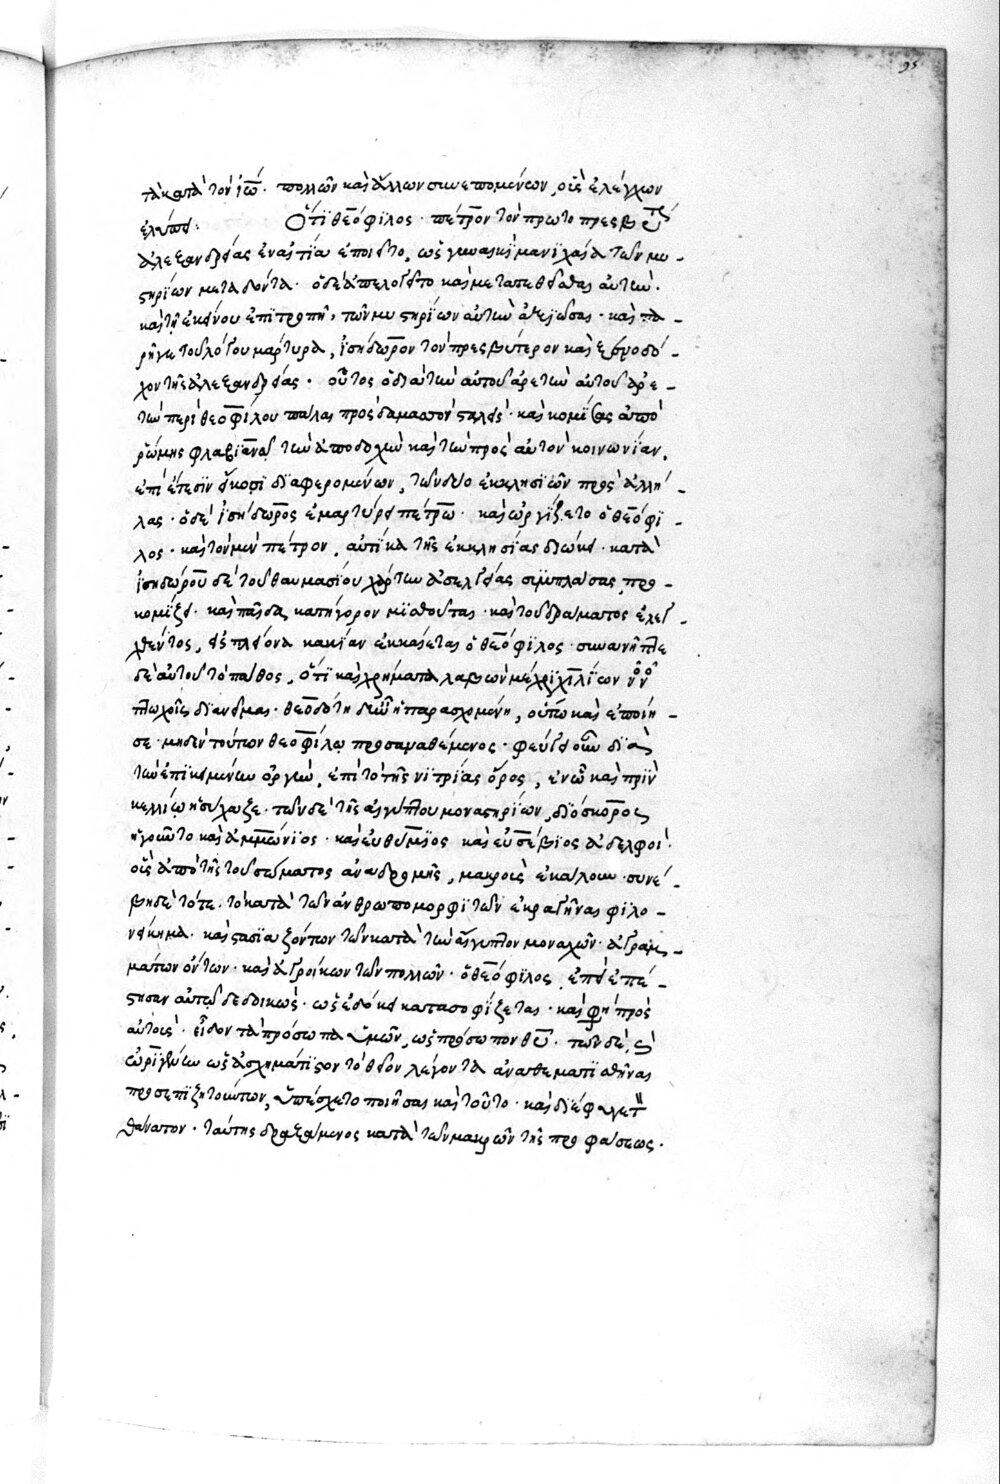 95
τὰ κατὰ τὸν ἰω. πολλῶν καὶ ἄλλων συνεπομένων, οἷς ἐλέγχων
ἐλύπει. Ὅτι θεόφιλος πέτρον τὸν πρωτοπρεσβυ
ἀλεξανδρείας ἐν αἰτία ἐποιεῖτο, ὡς γυναικὶ μανιχαία τῶν μυ-
στηρίων μεταδόντα. ὁ δὲ ἀπελογεῖτο καὶ μεταπεθεῖσθαι αὐτὴν.
καὶ τῇ ἐκείνου ἐπιτροπῆ, τῶν μυστηρίων αὐτὴν ἀξιῶσαι. καὶ πα-
ρῆγε τοῦ λόγου μάρτυρα, ἰσήδωρον τὸν πρεσβύτερον καὶ ξενοδό-
χον τῆς ἀλεξανδρείας. οὗτος ὁ διὰ τὴν αὐτοῦ ἀρετὴν
περὶ θεοφίλου πάλαι πρὸς δάμασον σταλεὶς. καὶ κομίσας ἀπὸ
ῥώμης φλαβιανῶ τὴν ἀποδοχὴν καὶ τὴν πρὸς αὐτὸν κοινωνίαν,
ἐπὶ ἔτεσιν εἴκοσι διαφερομένων, τῶν δύο ἐκκλησιῶν πρὸς ἀλλή-
λας. ὁ δὲ ἰσήδωρος ἐμαρτύρει πέτρω. καὶ ὠργίζετο ὁ θεόφι-
λος. καὶ τὸν μὲν πέτρον, αὐτίκα τῆς ἐκκλησίας διώκει. κατὰ
ἰσηδώρου δὲ τοῦ θαυμασίου χάρτην ἀσελγείας συμπλάσας, προ-
κομίζει. καὶ παῖδα κατήγορον μισθοῦται. καὶ τοῦ δράματος ἐλεγ
χθέντος, εἰς πλείονα κακίαν ἐκκαίεται ὁ θεόφιλος.
δὲ αὐτοῦ τὸ πάθος, ὅτι καὶ χρήματα λαβὼν μέχρι χιλίων
πτωχοῖς διανεῖμαι. θεοδότη δὲ ἦν ἡ παρασχομένη, οὕτω καὶ ἐποίη-
σε. μηδὲν τούτων θεοφίλω προσαναθέμενος. φεύγει οὖν διὰ
τὴν ἐπικειμένην ὀργὴν, ἐπὶ τὸ τῆς νιτρίας ὄρος, ἐν ᾧ καὶ πρὶν
κελλίω ἡσύχαζε. τῶν δὲ τῆς αἰγύπτου μοναστηρίων, διόσκορος
ἡγοῦντο καὶ ἀμμώνιος. καὶ εὐθύμιος καὶ εὐσέβιος ἀδελφοὶ.
οἷς ἀπὸ τῆς τοῦ σώματος ἀναδρομῆς, μακροὺς ἐκάλουν. συνέ-
βη δὲ τότε. τὸ κατὰ τῶν ἀνθρωπομορφιτῶν ἐκραγῆναι φιλο-
νείκημα. καὶ στασιαζόντων τῶν κατὰ τὴν αἴγυπτον μοναχῶν. ἀγραμ-
μάτων ὄντων. καὶ ἀγροίκων τῶν πολλῶν. ὁ θεόφιλος, ἐπεὶ ἐπέ-
στησαν αὐτῶ δεδοικὼς. ὡς ἐδόκει κατασοφίζεται. καὶ φησὶ πρὸς
αὐτοὺς. εἶδον τὰ πρόσωπα ὑμῶν, ὡς πρόσωπον θυ. τῶν δὲ,
ὠριγένην ὡς ἀσχημάτιστον τὸ θεῖον λέγοντα ἀναθεματισθῆναι
προσεπιζητούντων, ὑπέσχετο ποιῆσαι καὶ τοῦτο. καὶ διέφυγε τ
θάνατον. ταύτης δραξάμενος κατὰ τῶν μακρῶν τῆς προφάσεως.